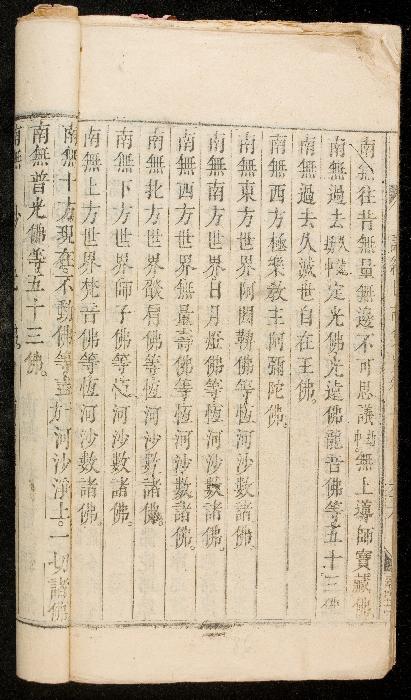 南無往昔無量無邊不可思議劫無上導師寶藏佛
南無過去久遠劫定光佛光遠佛龍音佛等五十三佛
南無過去久滅世自在王佛。
南無西方極樂教主阿彌陀佛。
南無東方世界阿閦鞞佛等恆河沙數諸佛。
南無南方世界日月燈佛等恆河沙數諸佛。
南無西方世界無量壽佛等恆河沙數諸佛。
南無北方世界燄肩佛等恆河沙數諸佛。
南無下方世界師子佛等恆河沙數諸佛。
南無上方世界梵音佛等恆河沙數諸佛。
南無十方現在不動佛等盡河沙淨土。一切諸佛
南無普光佛等五十三佛。
南無